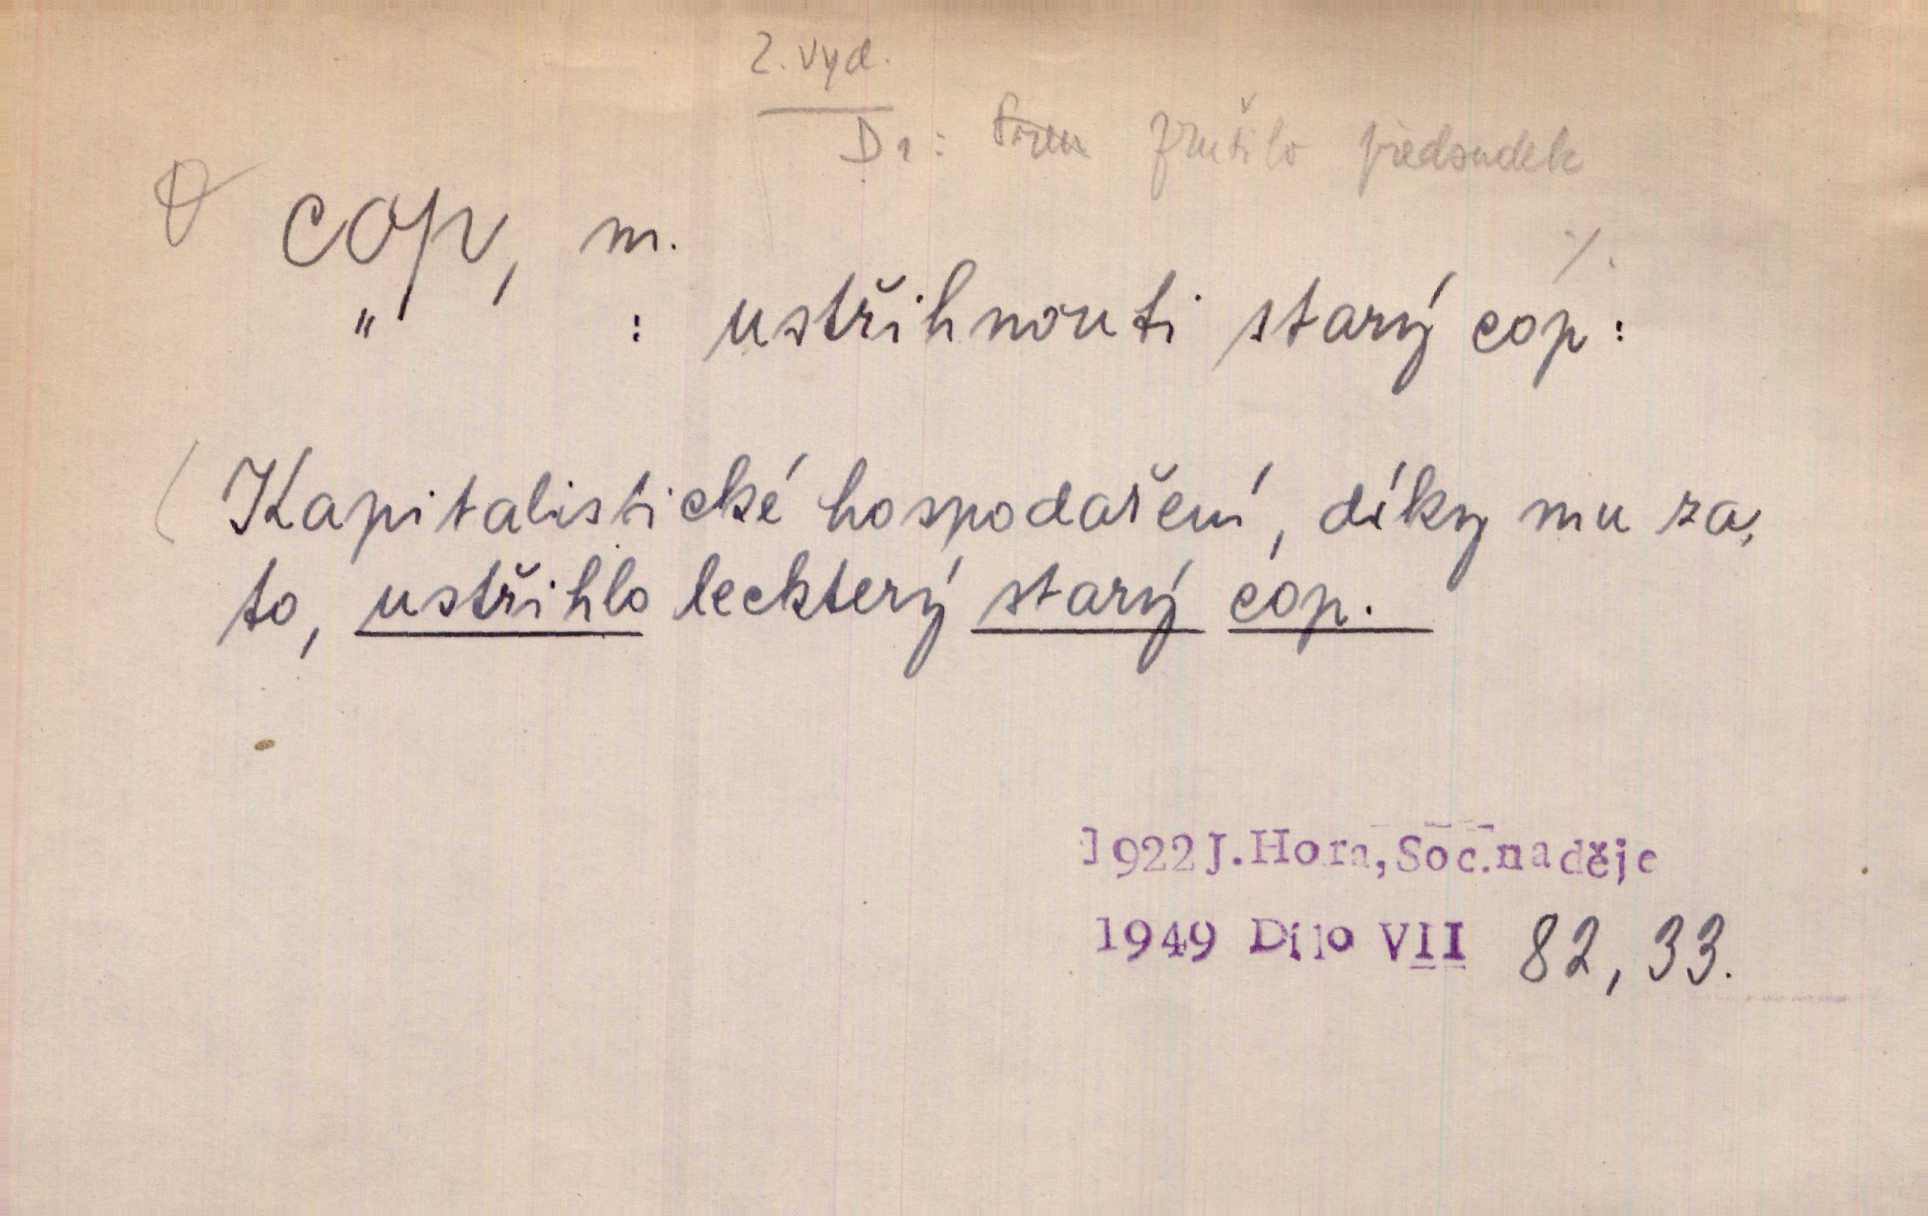 2. vyd.
D1: zrušilo předsudek
cop, m.
" : ustřihnouti starý cop:
Kapitalistické hospodaření, díky mu za
to, ustřihlo leckterý starý cop.
1922 J. Hora, Soc. naděje
1949 Dílo VII 82, 33.